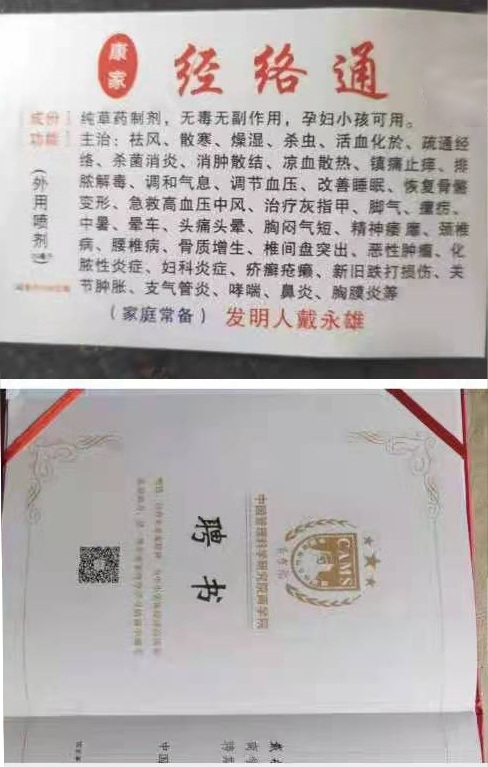 康家
经络通
成份 纯草药制剂，无毒无副作用，孕妇小孩可用。
功能 主治：祛风、散寒、燥湿、杀虫、活血化於、疏通经
络、杀菌消炎、消肿散结、凉血散热、镇痛止痒、排
脓解毒、调和气息、调节血压、改善睡眠、恢复骨骼
变形、急救高血压中风、治疗灰指甲、脚气、
中暑、晕车、头痛头晕、胸闷气短、精神痿靡、颈椎
病、腰椎病、骨质增生、椎间盘突出、恶性肿瘤、化
脓性炎症、妇科炎症、疥癣疮癞、新旧跌打损伤、关
节肿胀、支气管炎、哮喘、鼻炎、胸膜炎等
（外用喷剂）
（家庭常备） 发明人戴永雄
CAMS
商学院
中国管理科学研究院商学院
聘书